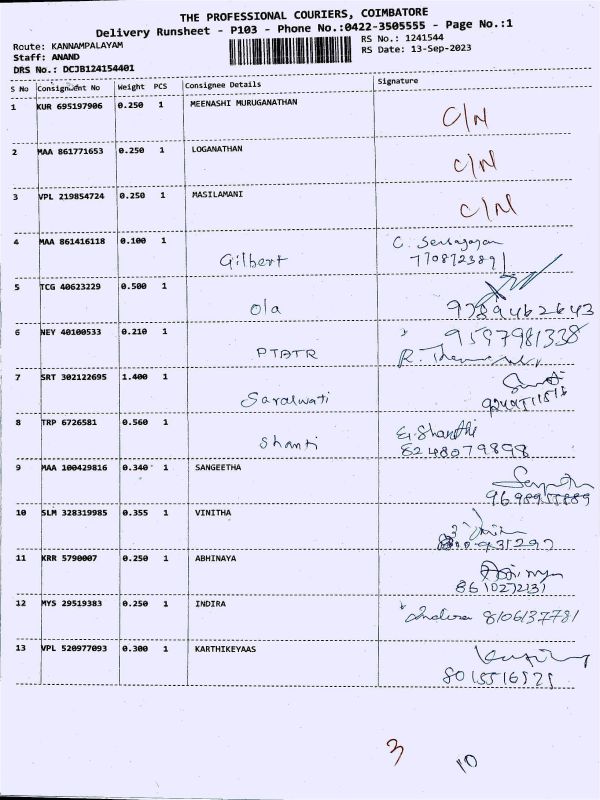 THE PROFESSIONAL COURIERS, COIMBATORE
Delivery Runsheet - P103 - Phone No.:0422-3505555 - Page No.:1
Route: KANNAMPALAYAM
RS No.: 1241544
Staff: ANAND
RS Date: 13-Sep-2023
DRS No.: DCJB124154401
S No Consignment No Weight PCS Consignee Details Signature
1 KUR 695197906 0.250 1 MEENASHI MURUGANATHAN C/N
2 MAA 861771653 0.250 1 LOGANATHAN C/N
3 VPL 219854724 0.250 1 MASILAMANI C/N
4 MAA 861416118 0.100 1 Gilbert C.
5 TCG 40623229 0.500 1 Ola 9789462643
6 NEY 40100533 0.210 1 PTATR 9597981338
R.
7 SRT 302122695 1.400 1 Saraswati
8 TRP 6726581 0.560 1 Shanti G. Shanthi
8248079898
9 MAA 100429816 0.340 1 SANGEETHA
10 SLM 328319985 0.355 1 VINITHA
11 KRR 5790007 0.250 1 ABHINAYA
8610272131
12 MYS 29519383 0.250 1 INDIRA Indira 8106137781
13 VPL 520977093 0.300 1 KARTHIKEYAAS
3 10